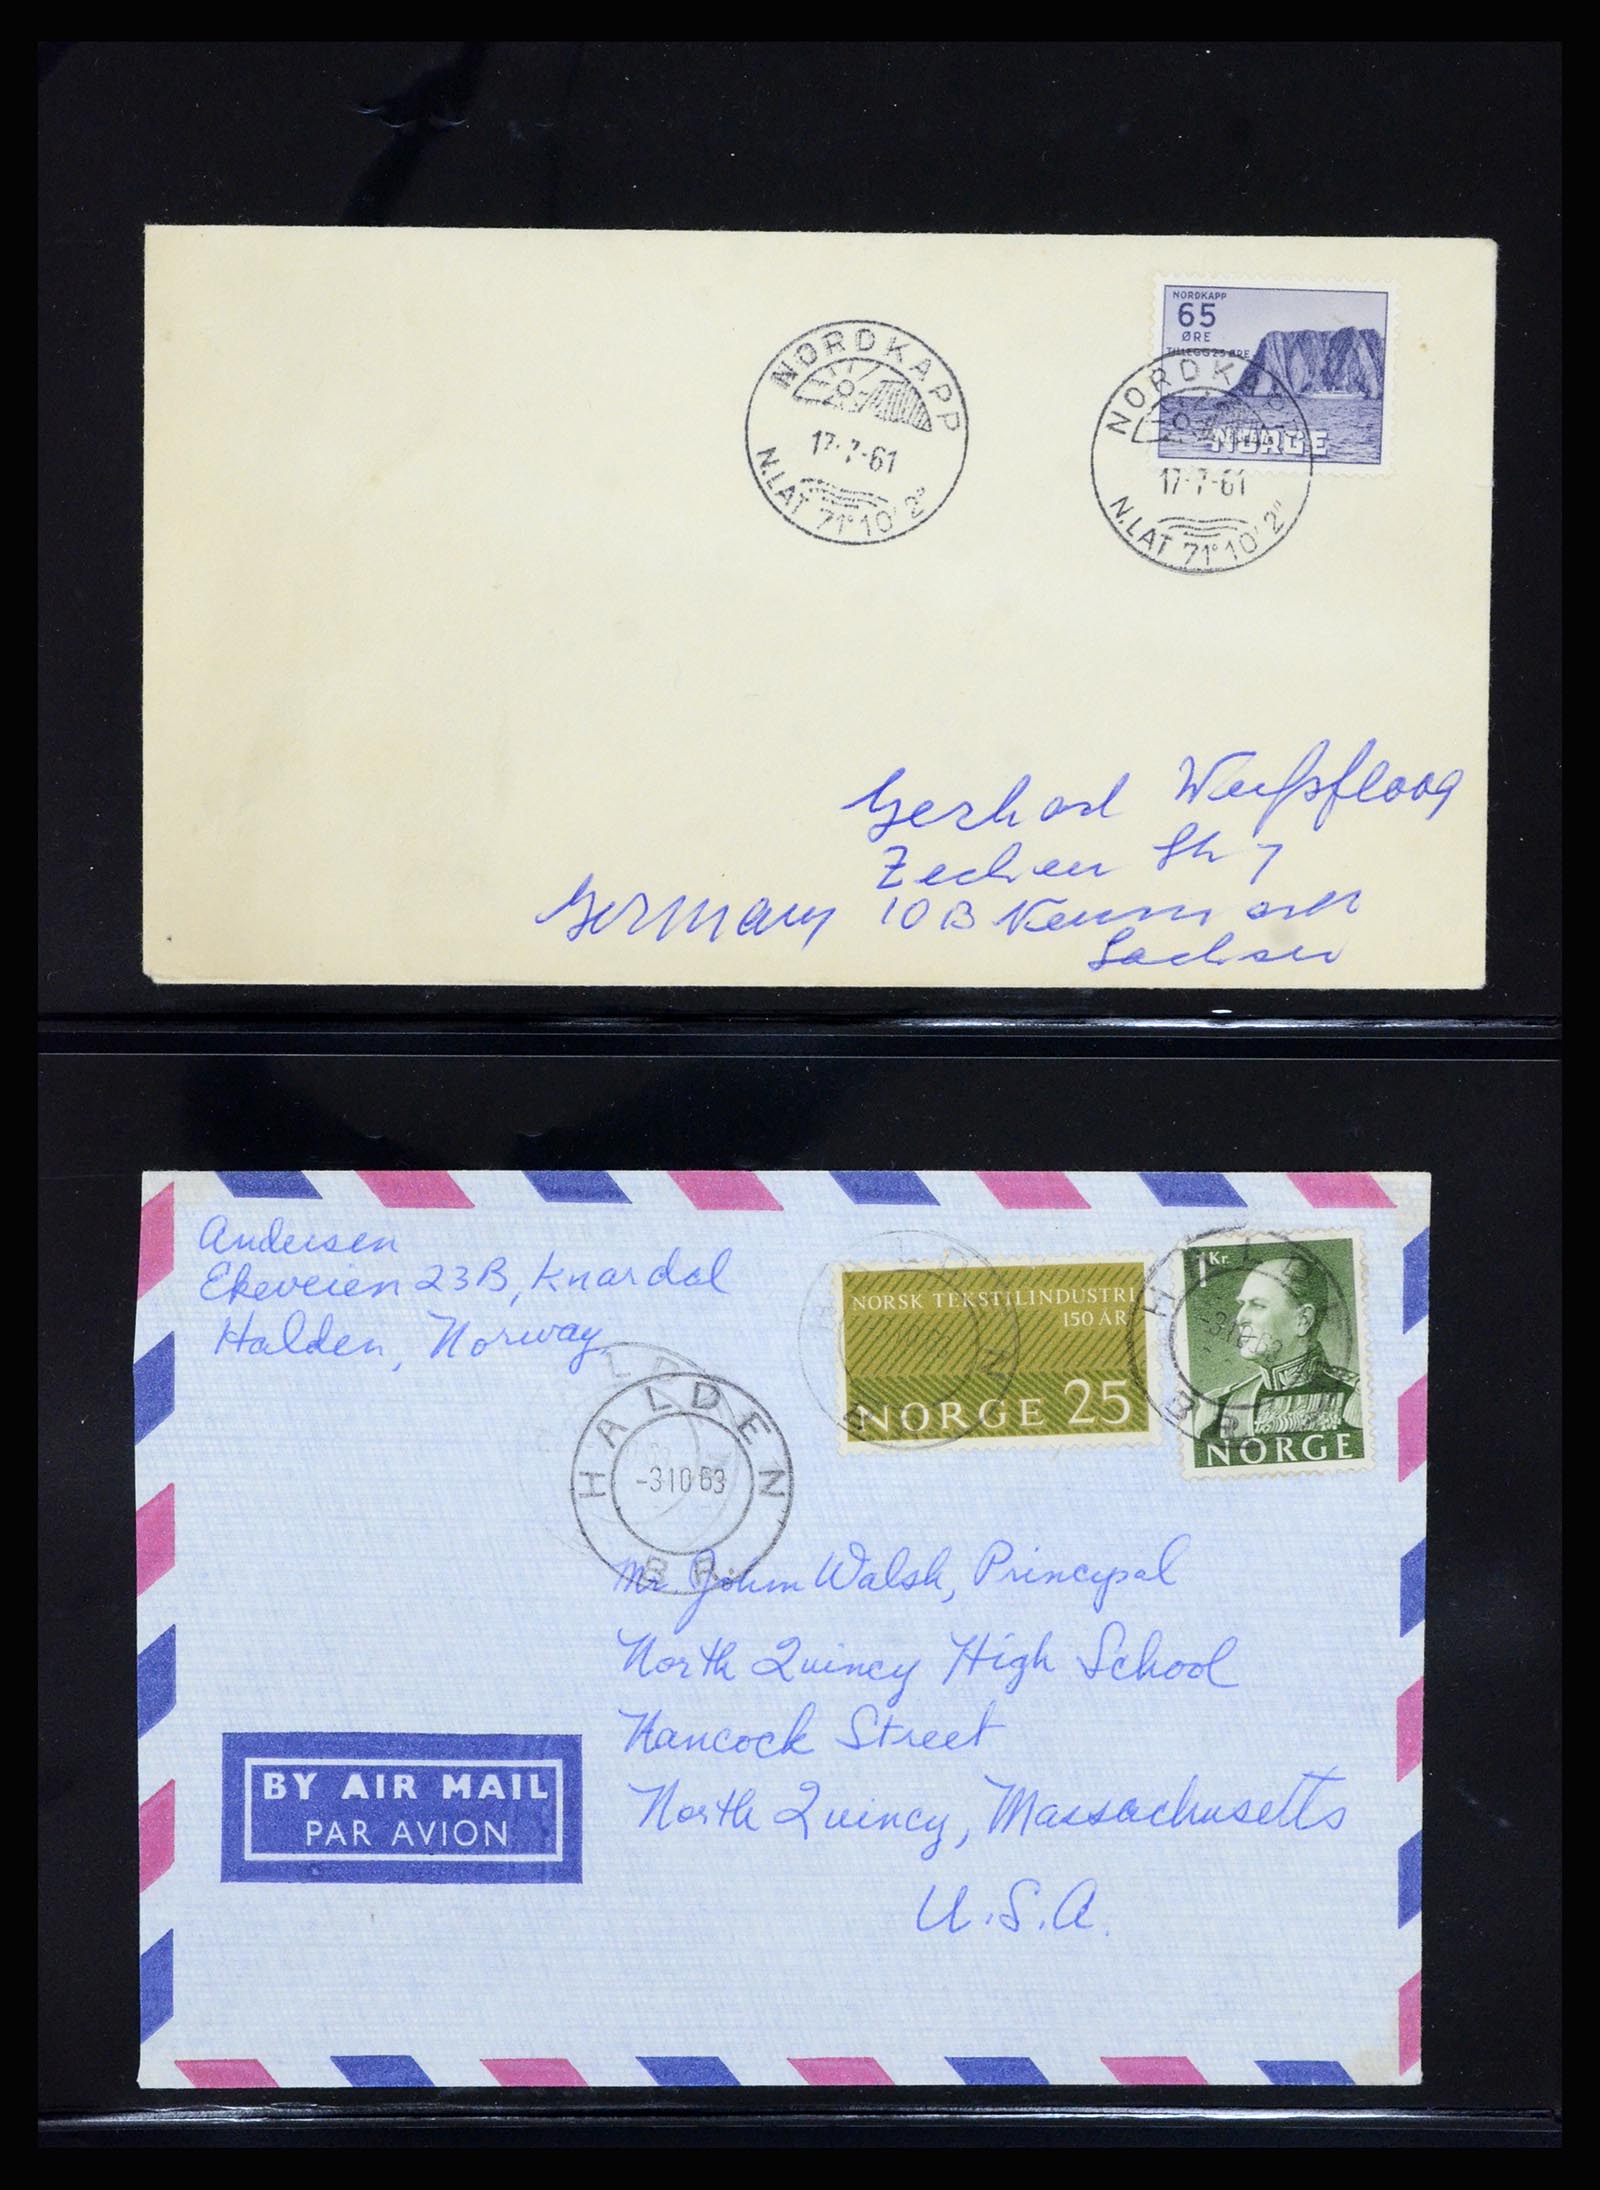 NORDKAPP
65
ØRE
TILLEGG 25 ØRE
NORGE
NORDKAPP
17-7-61
N.LAT 71° 10' 2"
NORDKAPP
17-7-61
N.LAT 71° 10' 2"
Gerhard Weißpfloog
Zechen Str 7
Germany 10B
Sachsen
Andersen
Ekeveien 23B, Knardal
Halden, Norway
NORSK TEKSTILINDUSTRI
150 ÅR
NORGE 25
1 Kr.
NORGE
HALDEN
-3 10 63
BR.
HALDEN
-3 10 63
BR.
Mr. John Walsh, Principal
North Quincy High School
Hancock Street
North Quincy, Massachusetts
U.S.A.
BY AIR MAIL
PAR AVION